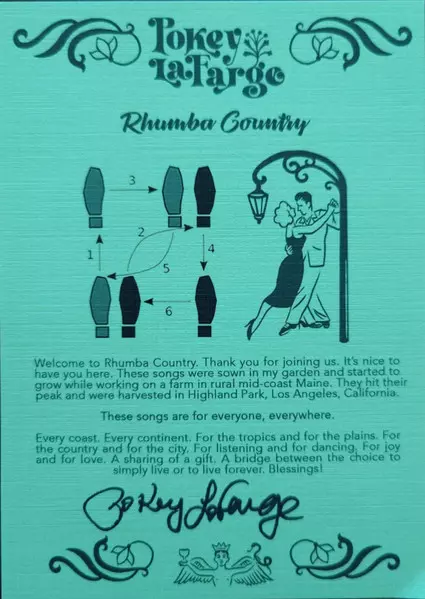 Pokey
LaFarge
Rhumba Country
3
2
1
4
5
6
Welcome to Rhumba Country. Thank you for joining us. It's nice to
have you here. These songs were sown in my garden and started to
grow while working on a farm in rural mid-coast Maine. They hit their
peak and were harvested in Highland Park, Los Angeles, California.
These songs are for everyone, everywhere.
Every coast. Every continent. For the tropics and for the plains. For
the country and for the city. For listening and for dancing. For joy
and for love. A sharing of a gift. A bridge between the choice to
simply live or to live forever. Blessings!
Pokey LaFarge